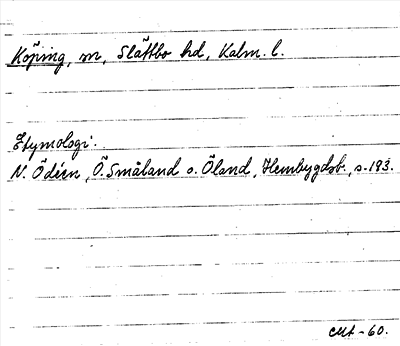 Köping, m, Slättbo hd, Kalm. l.
Etymologi:
N. Ödéen, Ö. Småland o. Öland, Hembygdsb., s. 193.
CMA-60.